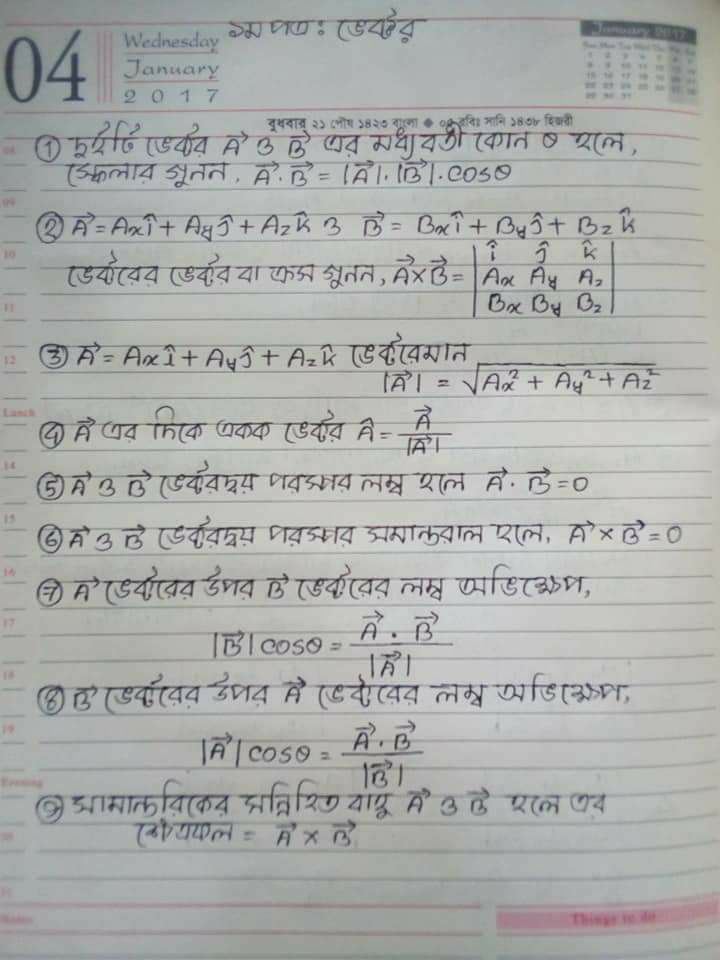 04
Wednesday
January
2017
১ম পত্র: ভেক্টর
January 2017
বুধবার ২১ পৌষ ১৪২৩ বাংলা ● ০৫ রবিঃ সানি ১৪৩৮ হিজরী
① দুইটি ভেক্টর A⃗ ও B⃗ এর মধ্যবর্তী কোন θ হলে,
স্কেলার গুনন, A⃗. B⃗ = |A⃗|. |B⃗|. cosθ
② A⃗ = Axî + Ayĵ + Azk̂ ও B⃗ = Bxî + Byĵ + Bzk̂
ভেক্টরের ভেক্টর বা ক্রস গুনন, A⃗×B⃗ = | î ĵ k̂ |
| Ax Ay Az |
| Bx By Bz |
③ A⃗ = Axî + Ayĵ + Azk̂ ভেক্টরেরমান
|A⃗| = √Ax² + Ay² + Az²
④ A⃗ এর দিকে একক ভেক্টর Â = A⃗ / |A⃗|
⑤ A⃗ ও B⃗ ভেক্টরদ্বয় পরস্পর লম্ব হলে A⃗. B⃗ = 0
⑥ A⃗ ও B⃗ ভেক্টরদ্বয় পরস্পর সমান্তরাল হলে, A⃗ × B⃗ = 0
⑦ A⃗ ভেক্টরের উপর B⃗ ভেক্টরের লম্ব অভিক্ষেপ,
|B⃗| cosθ = A⃗ . B⃗ / |A⃗|
⑧ B⃗ ভেক্টরের উপর A⃗ ভেক্টরের লম্ব অভিক্ষেপ,
|A⃗| cosθ = A⃗ . B⃗ / |B⃗|
⑨ সামান্তরিকের সন্নিহিত বাহু A⃗ ও B⃗ হলে এর
ক্ষেত্রফল = A⃗ × B⃗
Lunch
Evening
Notes
Things to do